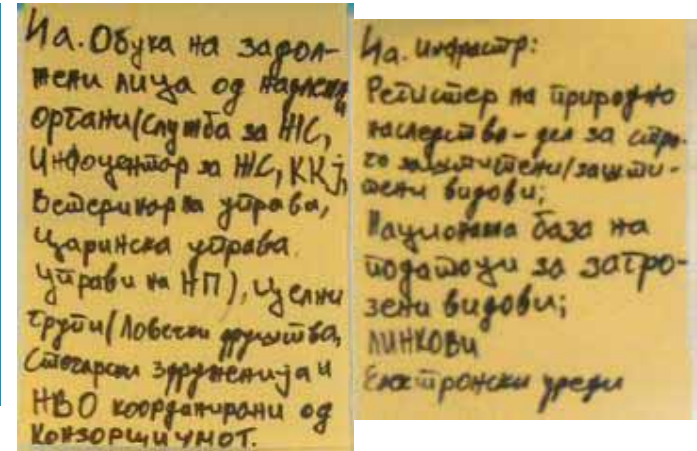 4а. Обука на задол-
жени лица од надлежни
органи (Служба за ЖС,
Инфоцентар за ЖС, ККЈ,
Ветеринарна управа,
Царинска управа.
управи на НП), целни
групи (ловечки друштва,
Сточарски здруженија и
НВО координирани од
Конзорциумот.
4а. инфрастр:
Регистер на природно
наследство - дел за стро-
го заштитени/зашти-
тени видови;
Национална база на
податоци за загро-
зени видови;
линкови
Електронски уреди